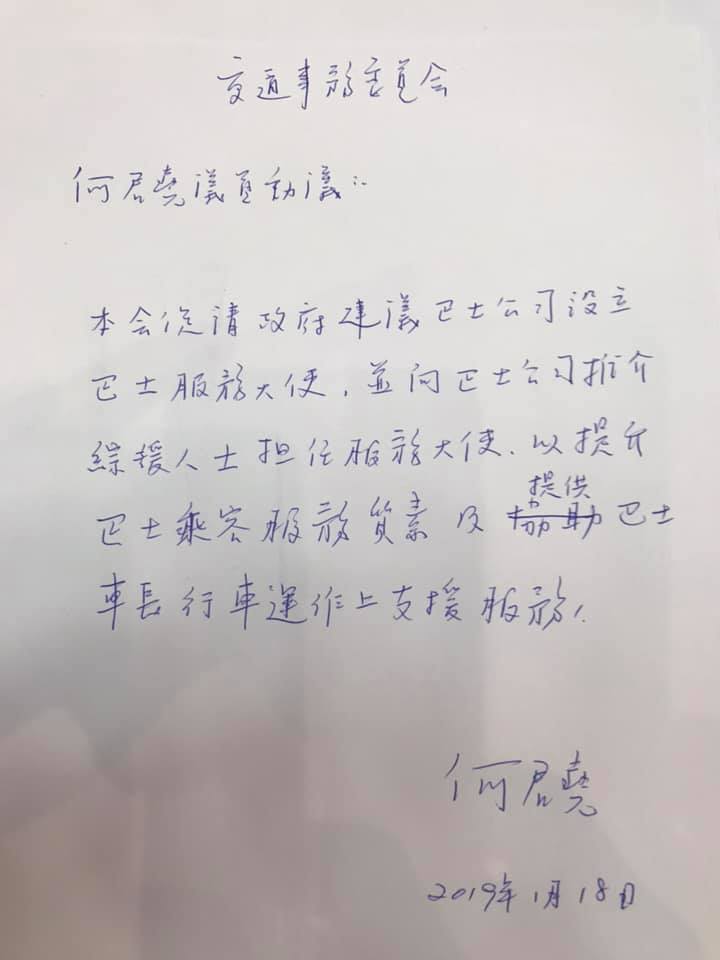 交通事務委員会
何君堯議員動議：
本会促請政府建議巴士公司設立
巴士服務大使，並向巴士公司推介
綜援人士担任服務大使，以提升
提供
巴士乘客服務質素及協助巴士
車長行車運作上支援服務，
何君堯
2019年1月18日